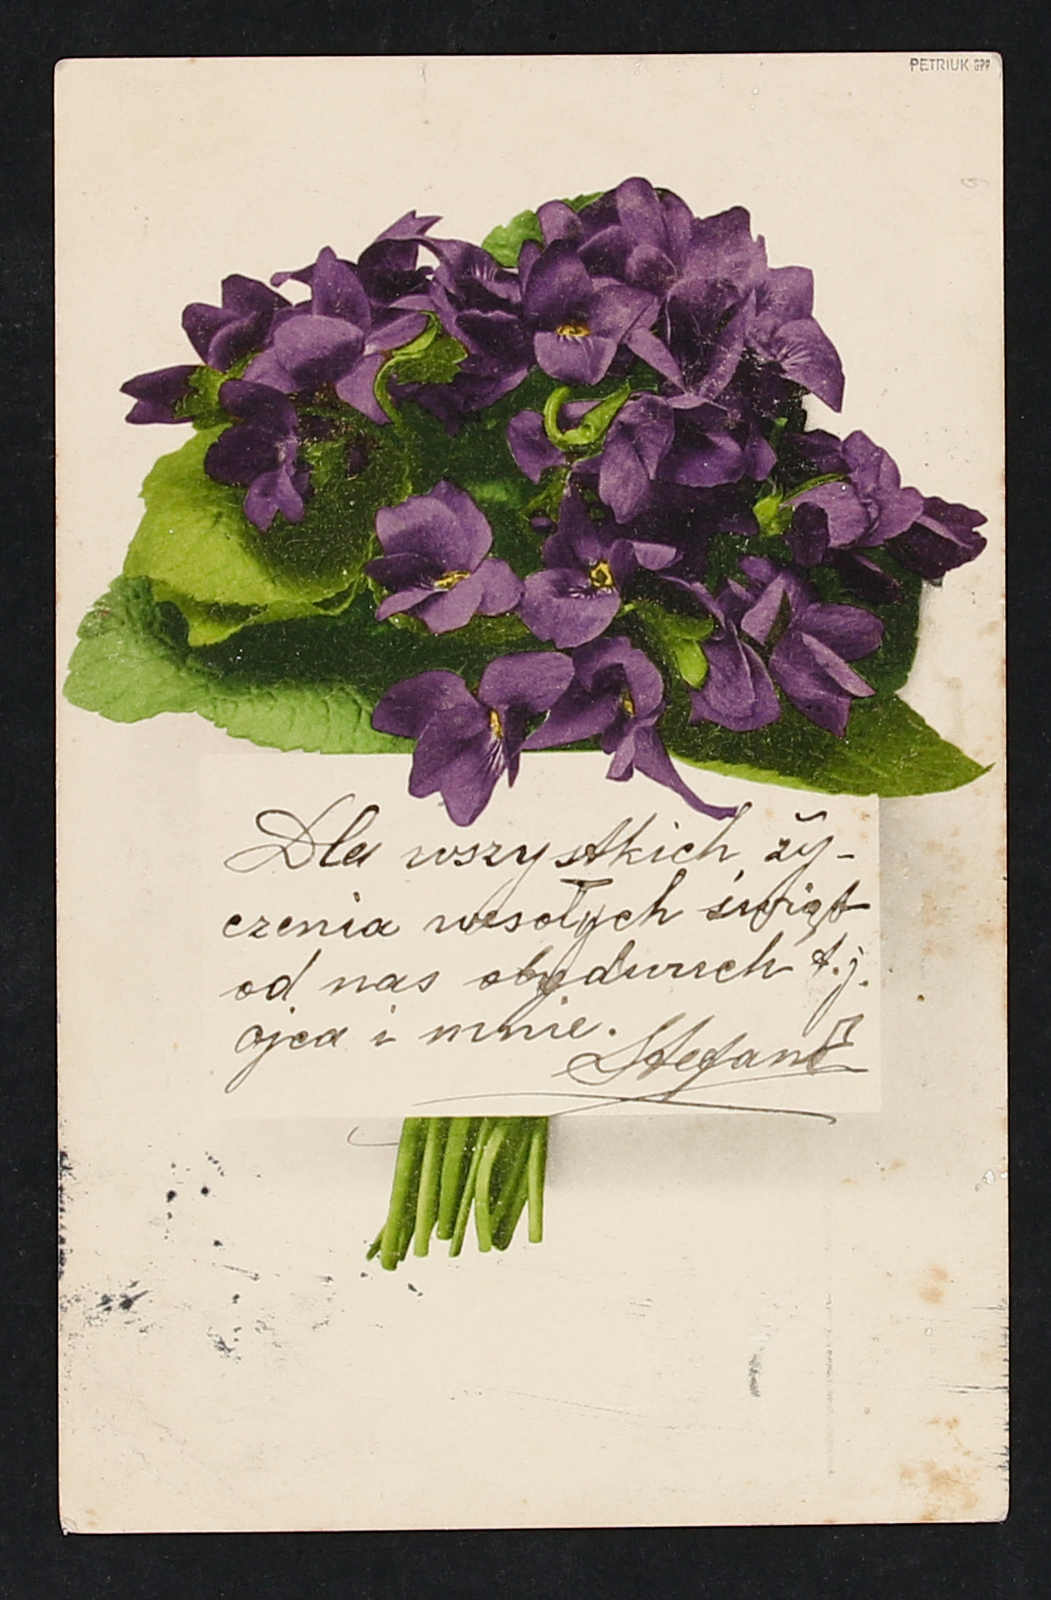 PETRIUK GPP
Dla wszystkich ży-
czenia wesołych świąt
od nas obydwuch t.j.
ojca i mnie.
Stefan